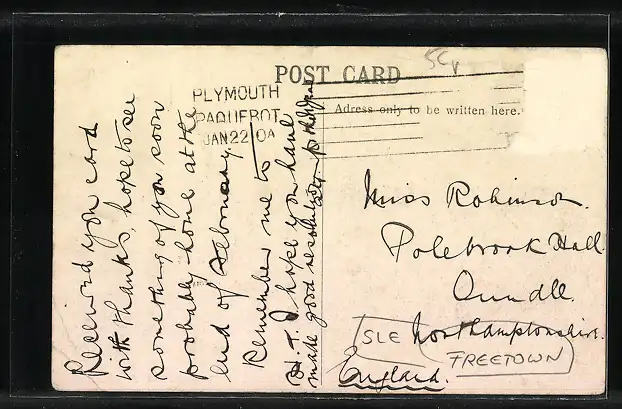 5C
POST CARD
PLYMOUTH
PAQUEBOT
JAN 22 0A
Adress only to be written here.
Received you card
with thanks, hope to see
something of you soon
probably home at the
end of February,
Remember me to
I hope you have
made good resolutions for the
Miss Robinson.
Polebrook Hall.
Oundle.
Northamptonshire.
England.
SLE
FREETOWN